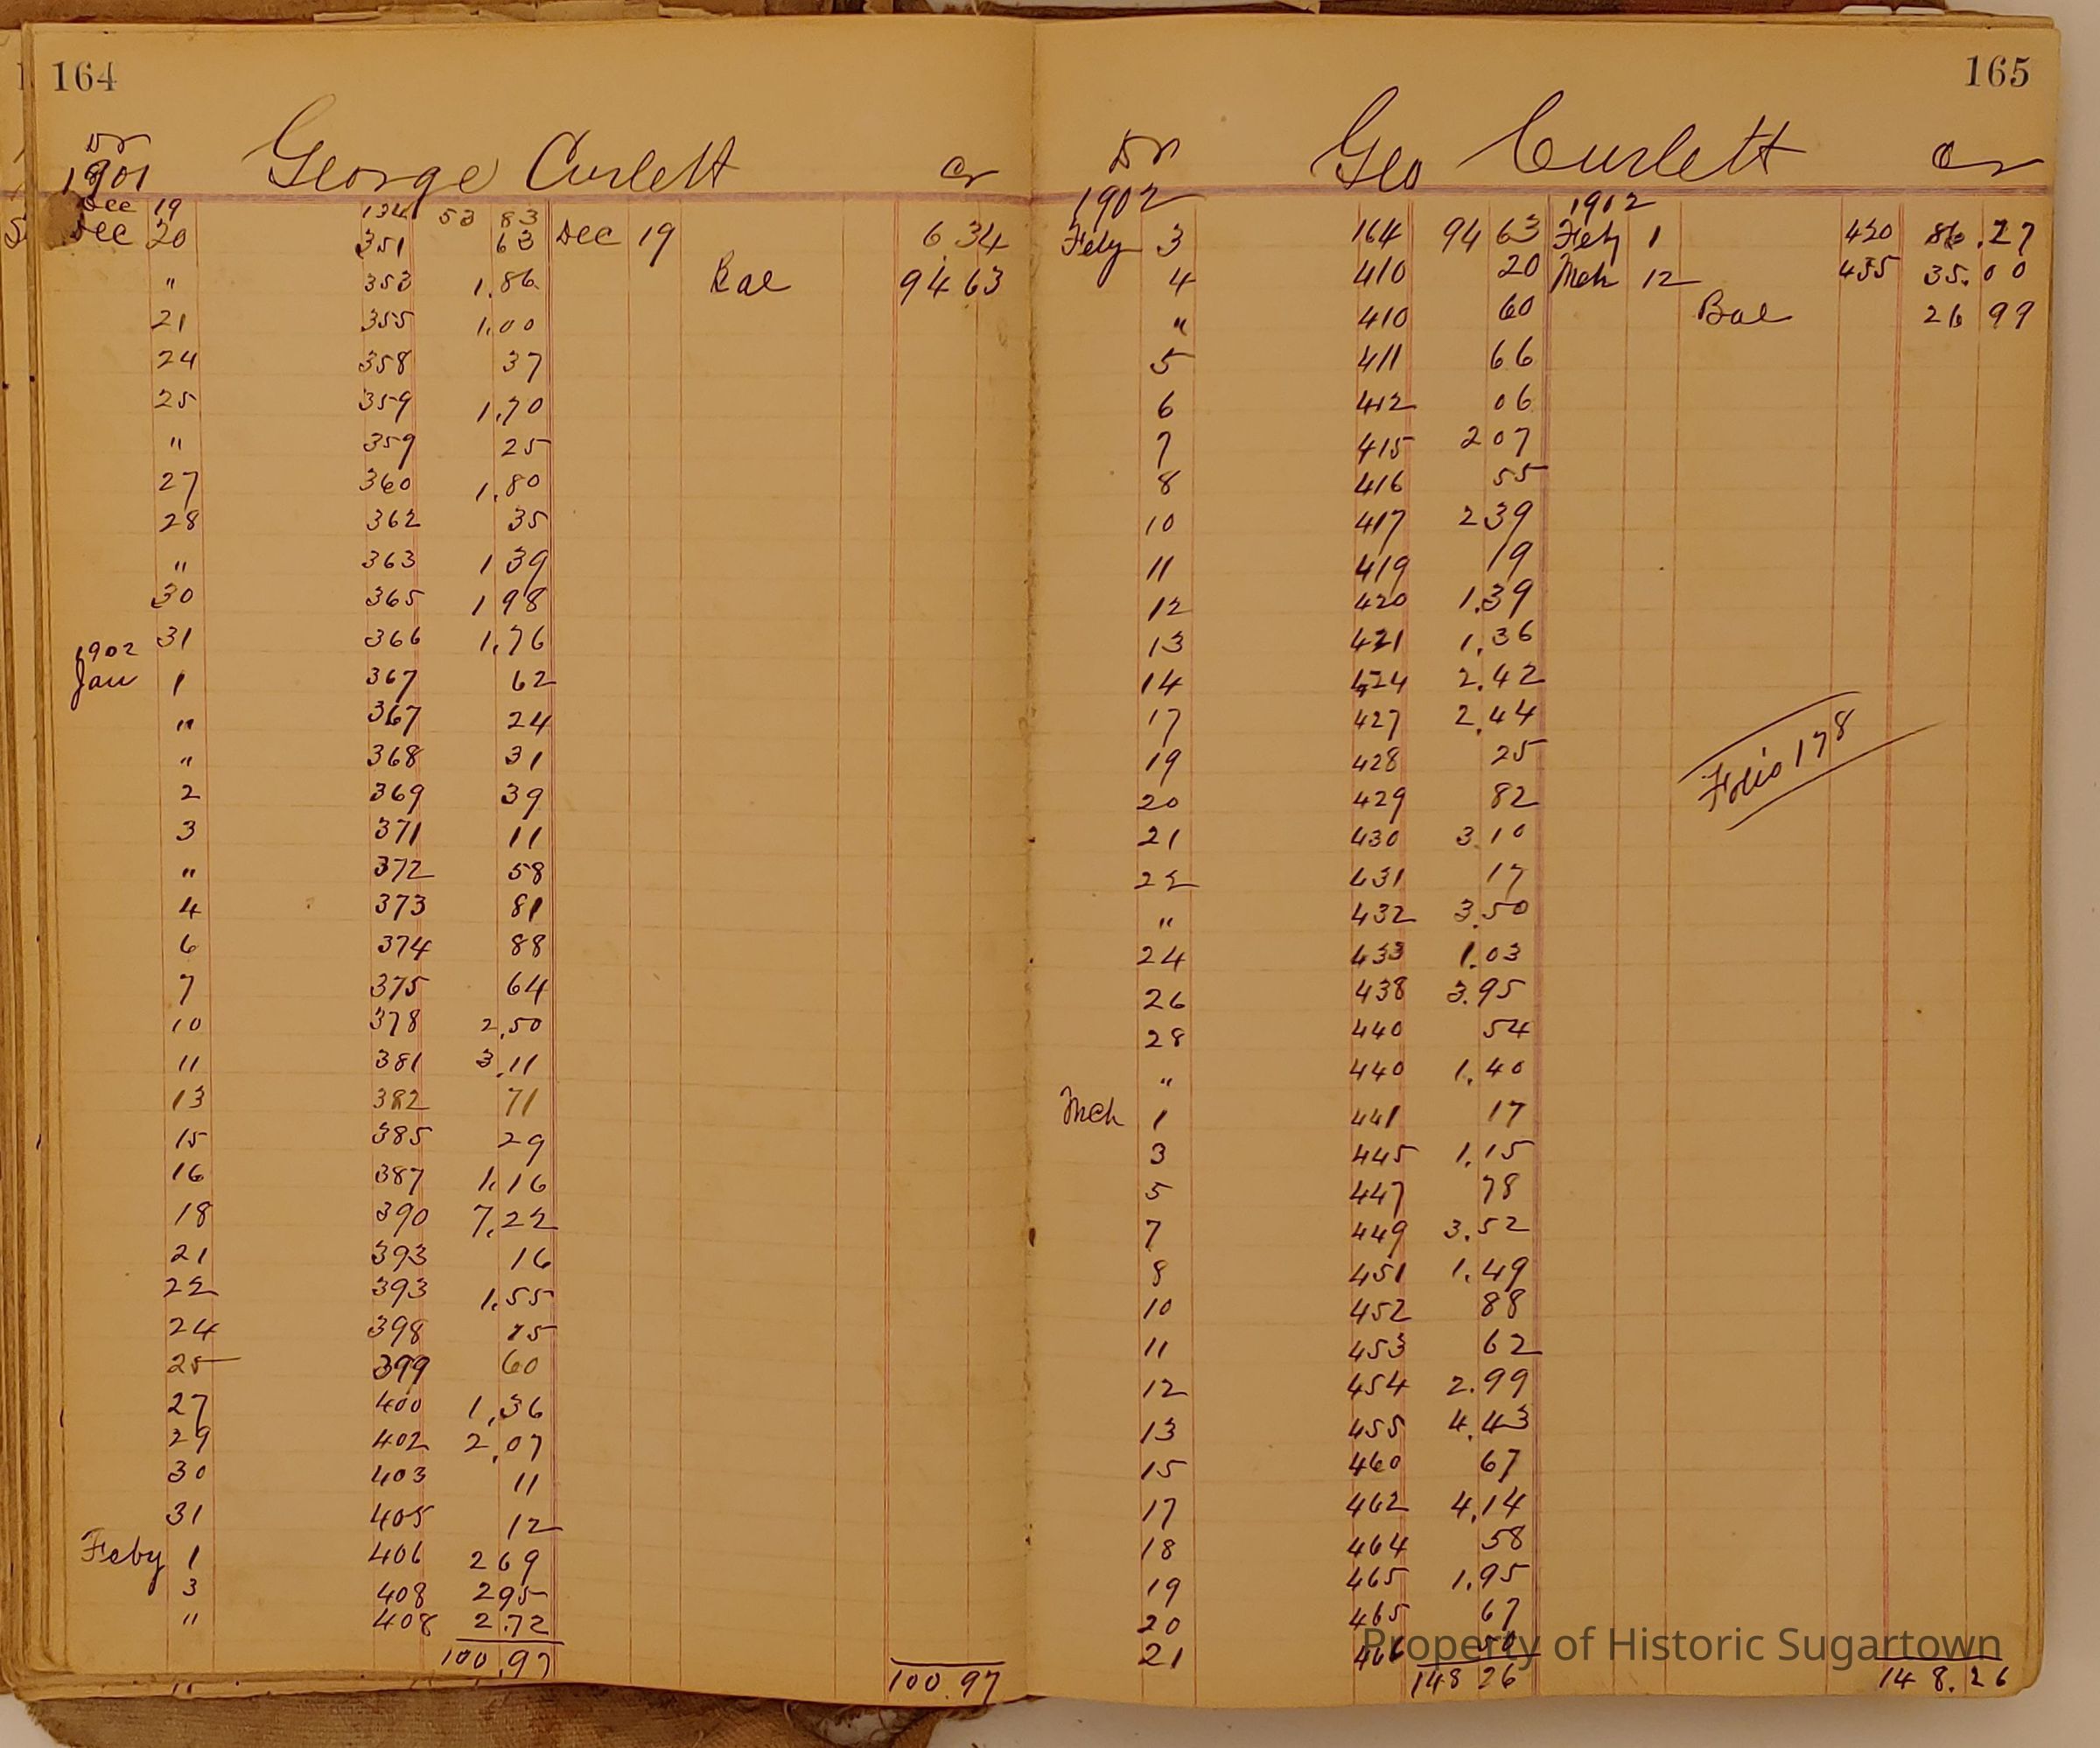 164
Dr George Curlett Cr
1901
Dec 19 134 53 83
Dec 20 351 63 Dec 19 6.34
" 353 1.86 Bal 94 63
21 355 1.00
24 358 37
25 359 1.70
" 359 25
27 360 1.80
28 362 35
" 363 1 39
30 365 1 98
31 366 1.76
1902
Jan 1 367 62
" 367 24
" 368 31
2 369 39
3 371 11
" 372 58
4 373 81
6 374 88
7 375 64
10 378 2.50
11 381 3.11
13 382 71
15 385 29
16 387 1.16
18 390 7.22
21 393 16
22 393 1.55
24 398 75
25 399 60
27 400 1.36
29 402 2.07
30 403 11
31 405 12
Feby 1 406 2 69
3 408 2 95
" 408 2.72
100.97 100.97
165
Dr Geo Curlett Cr
1902 1902
Feby 3 164 94 63 Feby 1 420 86.27
4 410 20 Mch 12 455 35.00
" 410 60 Bal 26 99
5 411 66
6 412 06
7 415 2 07
8 416 55
10 417 2 39
11 419 19
12 420 1.39
13 421 1.36
14 424 2.42
17 427 2.44
19 428 25
20 429 82
21 430 3 10
22 431 17
" 432 3.50
24 433 1.03
26 438 3.95
28 440 54
" 440 1.40
Mch 1 441 17
3 445 1.15
5 447 78
7 449 3.52
8 451 1.49
10 452 88
11 453 62
12 454 2.99
13 455 4.43
15 460 67
17 462 4.14
18 464 58
19 465 1.95
20 465 67
21 466 50
148 26 148.26
Folio 178
Property of Historic Sugartown